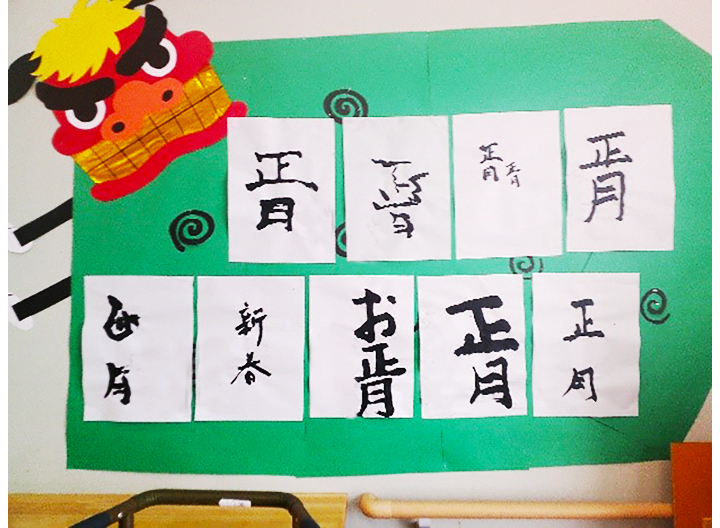 正月
正月
正月
正月
正月
正月
新春
お正月
正月
正月